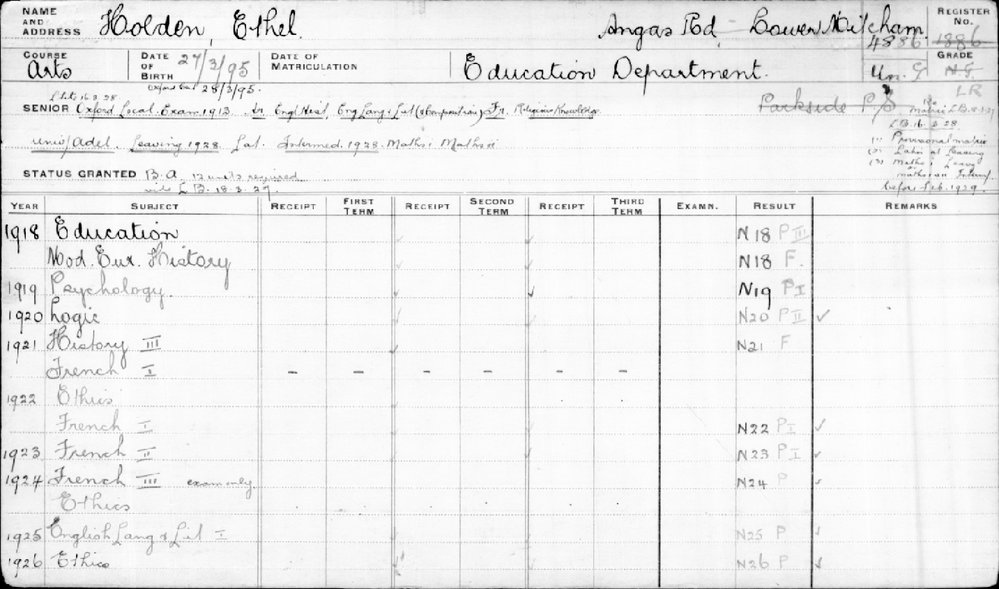 NAME AND ADDRESS Holden, Ethel. Angas Rd Lower Mitcham. REGISTER No.
4886 1886
COURSE Arts DATE OF BIRTH 27/3/95 DATE OF MATRICULATION Education Department. GRADE
28/3/95. LR
SENIOR Oxford Local Exam. 1913. Engl Hist, Eng Lang & Lit (& Composition) Fr. Religious Knowledge Parkside P/S
L.B. 16. 3. 28
Univ/Adel. Leaving 1928. Lat. Intermed. 1928. Maths i Maths ii (1) Provisional matric
(2) Latin at Leaving
(3) Maths i Leav
STATUS GRANTED B.A. 12 units required
vide L.B. 18. 3. 27. before Feb. 1929.
YEAR SUBJECT RECEIPT FIRST TERM RECEIPT SECOND TERM RECEIPT THIRD TERM EXAMN. RESULT REMARKS
1918 Education N18 P III
Mod. Eur. History N18 F.
1919 Psychology. N19 P I
1920 Logic N20 P II ✓
1921 History III N21 F
French I - - - - - -
1922 Ethics
French I N22 P I ✓
1923 French II N23 P I ✓
1924 French III exam only. N24 P ✓
Ethics
1925 English Lang & Lit I N25 P ✓
1926 Ethics N26 P ✓